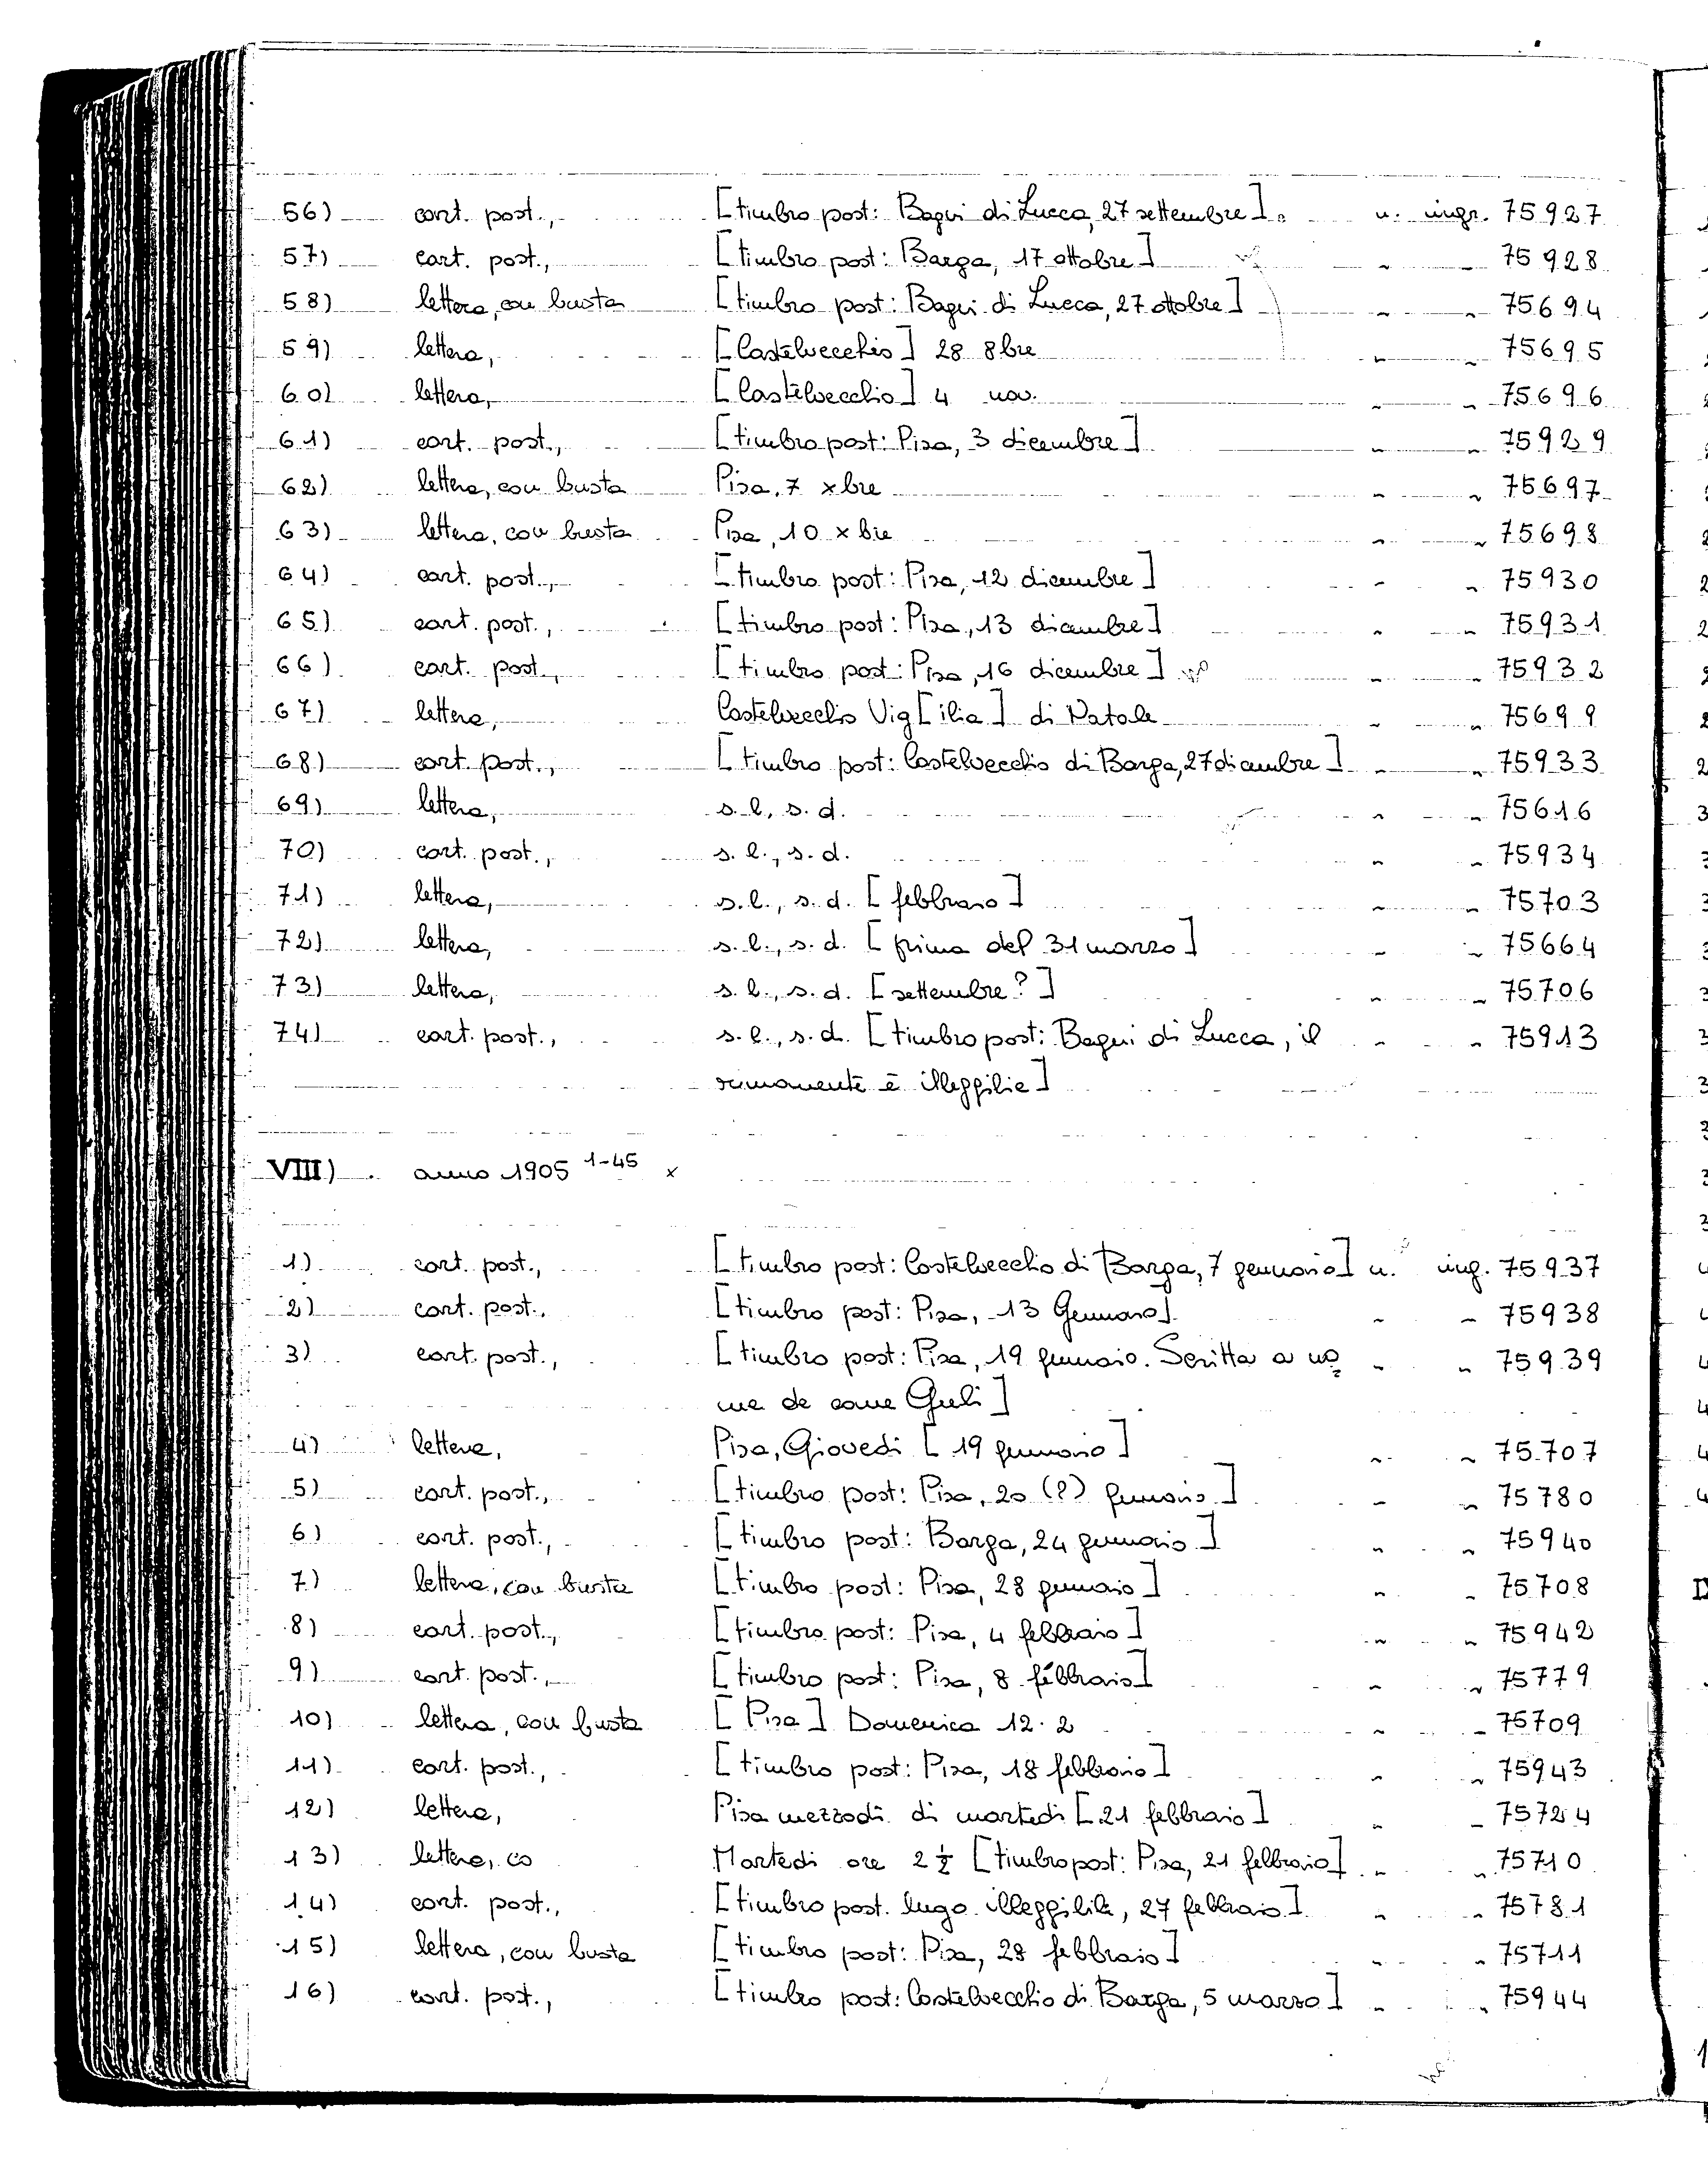 56) cart. post., [timbro post: Bagni di Lucca, 27 settembre]. n. ingr. 75927
57) cart. post., [timbro post: Barga, 17 ottobre] " " 75928
58) lettera, con busta [timbro post: Bagni di Lucca, 27 ottobre] " " 75694
59) lettera, [Castelvecchio] 28 8bre " " 75695
60) lettera, [Castelvecchio] 4 nov. " " 75696
61) cart. post., [timbro post: Pisa, 3 dicembre] " " 75929
62) lettera, con busta Pisa, 7 xbre " " 75697
63) lettera, con busta Pisa, 10 xbre " " 75698
64) cart. post., [timbro post: Pisa, 12 dicembre] " " 75930
65) cart. post., [timbro post: Pisa, 13 dicembre] " " 75931
66) cart. post., [timbro post: Pisa, 16 dicembre] " " 75932
67) lettera, Castelvecchio Vig[ilia] di Natale " " 75699
68) cart. post., [timbro post: Castelvecchio di Barga, 27 dicembre] " " 75933
69) lettera, s.l, s.d. " " 75616
70) cart. post., s.l., s.d. " " 75934
71) lettera, s.l., s.d. [febbraio] " " 75703
72) lettera, s.l., s.d. [prima del 31 marzo] " " 75664
73) lettera, s.l., s.d. [settembre?] " " 75706
74) cart. post., s.l., s.d. [timbro post: Bagni di Lucca, il " " 75913
rimanente è illeggilie]
VIII) . anno 1905 1-45 x
1) cart. post., [timbro post: Castelvecchio di Barga, 7 gennaio] n. ing. 75937
2) cart. post., [timbro post: Pisa, 13 Gennaio] " " 75938
3) cart. post., [timbro post: Pisa, 19 gennaio. Scritta a no= " " 75939
me de cane Guli]
4) lettera, Pisa, Giovedì [19 gennaio] " " 75707
5) cart. post., [timbro post: Pisa, 20 (?) gennaio] " " 75780
6) cart. post., [timbro post: Barga, 24 gennaio] " " 75940
7) lettera, con busta [timbro post: Pisa, 28 gennaio] " " 75708
8) cart. post., [timbro post: Pisa, 4 febbraio] " " 75942
9) cart. post., [timbro post: Pisa, 8 febbraio] " " 75779
10) lettera, con busta [Pisa] Domenica 12.2 " " 75709
11) cart. post., [timbro post: Pisa, 18 febbraio] " " 75943
12) lettera, Pisa mezzodì di martedì [21 febbraio] " " 75724
13) lettera, co Martedì ore 2 ½ [timbro post: Pisa, 21 febbraio] " " 75710
14) cart. post., [timbro post. lugo illeggibile, 27 febbraio] " " 75781
15) lettera, con busta [timbro post: Pisa, 28 febbraio] " " 75711
16) cart. post., [timbro post: Castelvecchio di Barga, 5 marzo] " " 75944